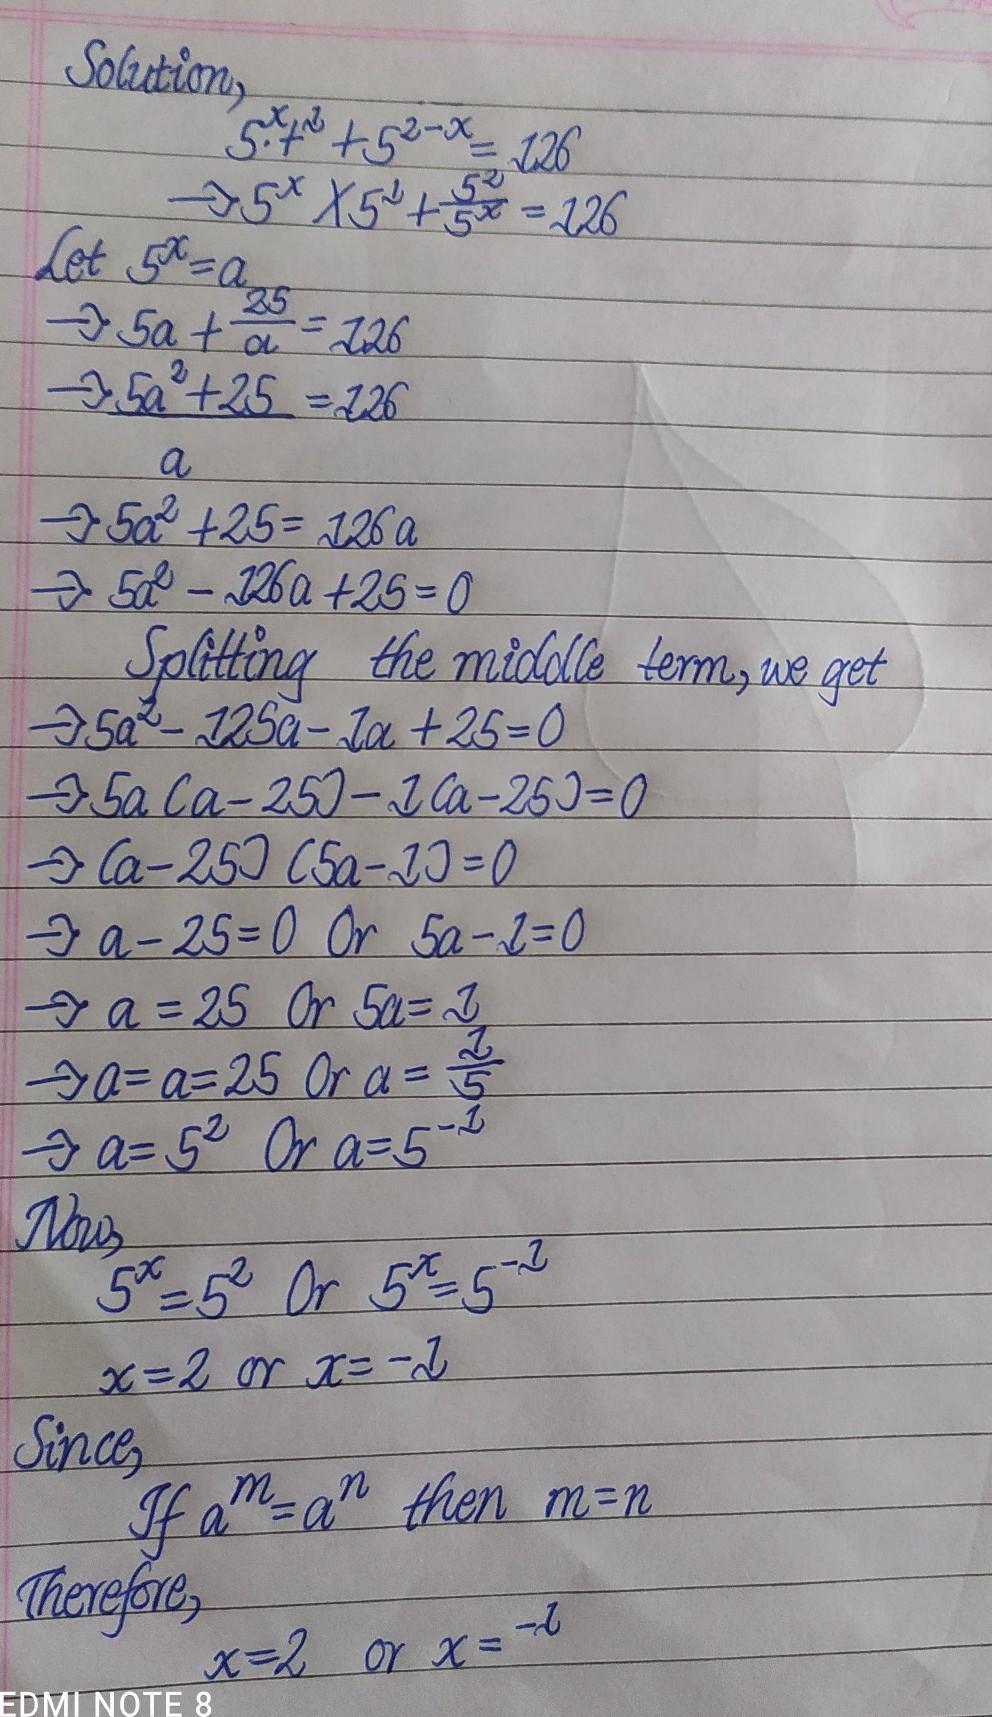 Solution,
5^{x+1} + 5^{2-x} = 126
→ 5^x × 5^1 + 5^2/5^x = 126
Let 5^x = a
→ 5a + 25/a = 126
→ 5a^2 + 25 = 126
a
→ 5a^2 + 25 = 126a
→ 5a^2 - 126a + 25 = 0
Splitting the middle term, we get
→ 5a^2 - 125a - 1a + 25 = 0
→ 5a (a - 25) - 1(a - 25) = 0
→ (a - 25) (5a - 1) = 0
→ a - 25 = 0 Or 5a - 1 = 0
→ a = 25 Or 5a = 1
→ a = a = 25 Or a = 1/5
→ a = 5^2 Or a = 5^{-1}
Now,
5^x = 5^2 Or 5^x = 5^{-1}
x = 2 or x = -1
Since,
If a^m = a^n then m = n
Therefore,
x = 2 or x = -1
EDMI NOTE 8